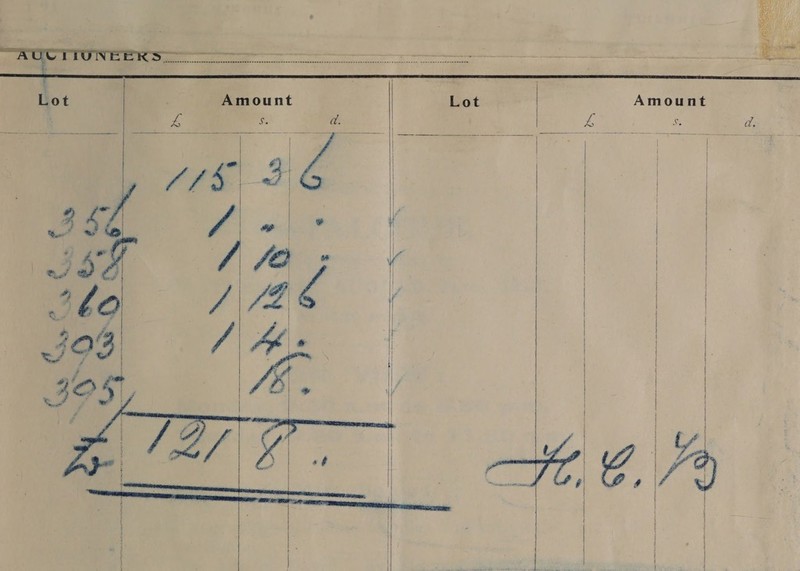 AUCTIONEERS
Lot Amount Lot Amount
£ s. d. £ s. d.
115 3 6
356 1 " "
358 1 10 "
369 1 12 6
393 1 4 .
395 18 .
£ 121 8 "
H. C. B